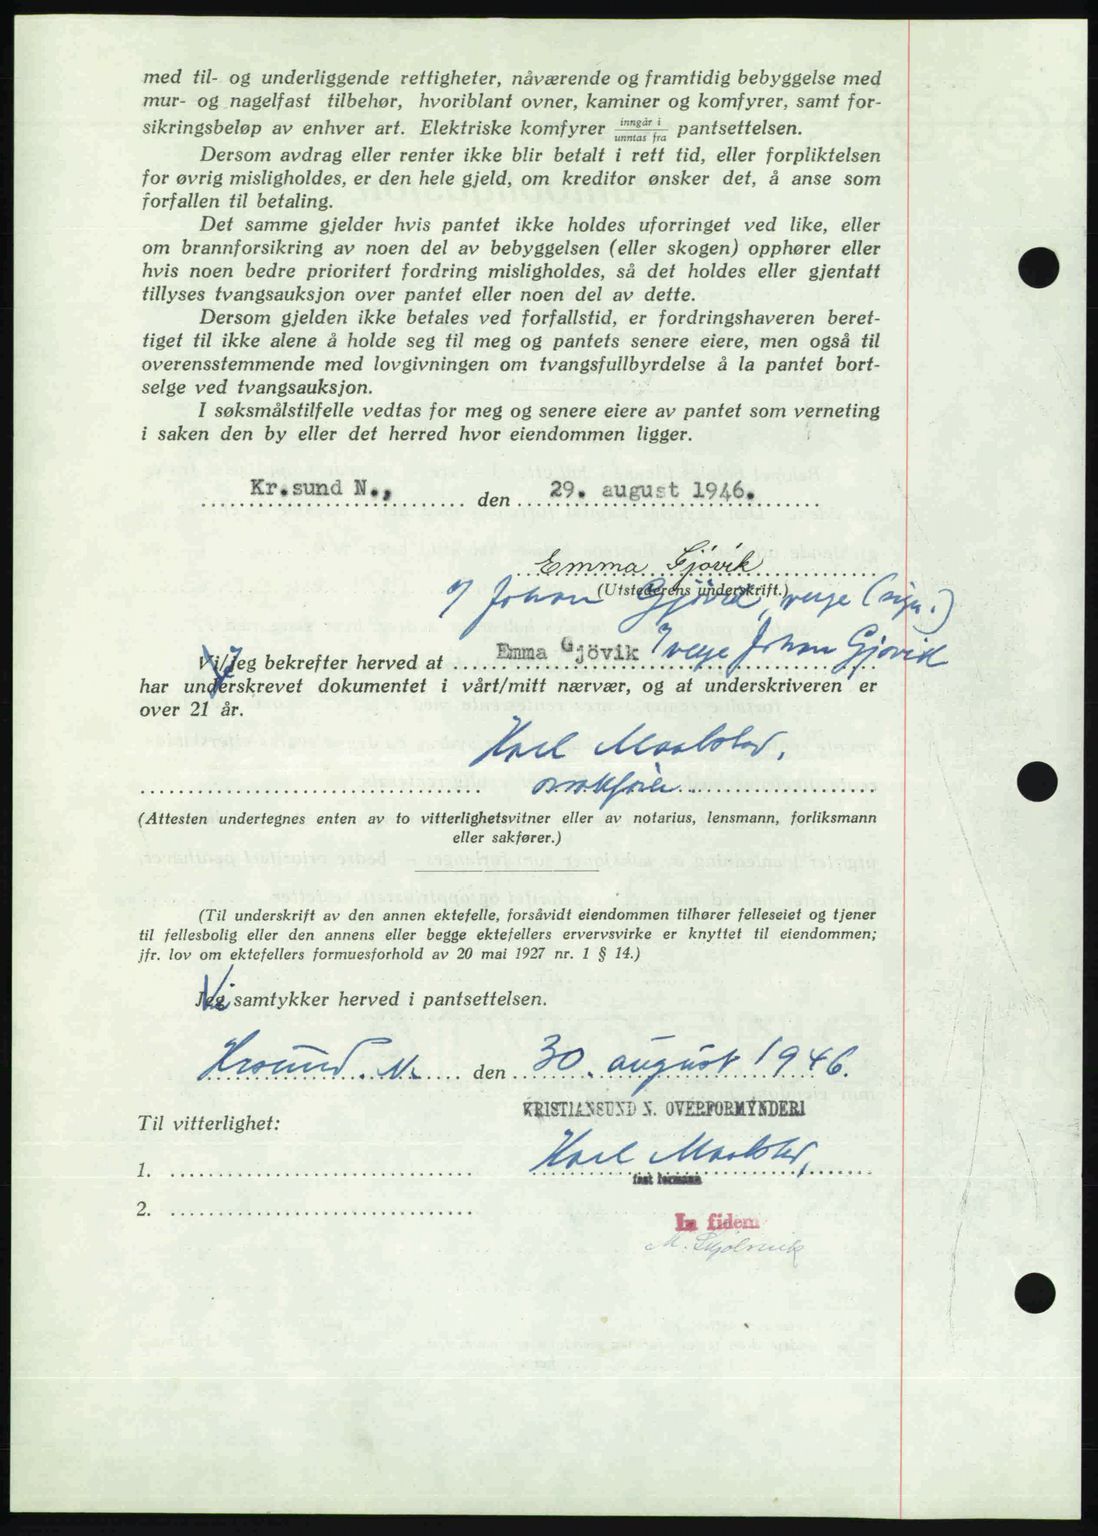 med til- og underliggende rettigheter, nåværende og framtidig bebyggelse med
mur- og nagelfast tilbehør, hvoriblant ovner, kaminer og komfyrer, samt for-
sikringsbeløp av enhver art. Elektriske komfyrer inngår i / unntas fra pantsettelsen.
Dersom avdrag eller renter ikke blir betalt i rett tid, eller forpliktelsen
for øvrig misligholdes, er den hele gjeld, om kreditor ønsker det, å anse som
forfallen til betaling.
Det samme gjelder hvis pantet ikke holdes uforringet ved like, eller
om brannforsikring av noen del av bebyggelsen (eller skogen) opphører eller
hvis noen bedre prioritert fordring misligholdes, så det holdes eller gjentatt
tillyses tvangsauksjon over pantet eller noen del av dette.
Dersom gjelden ikke betales ved forfallstid, er fordringshaveren beret-
tiget til ikke alene å holde seg til meg og pantets senere eiere, men også til
overensstemmende med lovgivningen om tvangsfullbyrdelse å la pantet bort-
selge ved tvangsauksjon.
I søksmålstilfelle vedtas for meg og senere eiere av pantet som verneting
i saken den by eller det herred hvor eiendommen ligger.
Kr.sund N., den 29. august 1946.
Emma Gjövik
(Utstederens underskrift.)
v/ Johan Gjövik, verge (sign.)
Vi/Jeg bekrefter herved at Emma Gjövik v/verge Johan Gjövik
har underskrevet dokumentet i vårt/mitt nærvær, og at underskriveren er
over 21 år.
Karl
(Attesten undertegnes enten av to vitterlighetsvitner eller av notarius, lensmann, forliksmann
eller sakfører.)
(Til underskrift av den annen ektefelle, forsåvidt eiendommen tilhører felleseiet og tjener
til fellesbolig eller den annens eller begge ektefellers ervervsvirke er knyttet til eiendommen;
jfr. lov om ektefellers formuesforhold av 20 mai 1927 nr. 1 § 14.)
Vi samtykker herved i pantsettelsen.
Krsund. N. den 30. august 1946.
KRISTIANSUND N. OVERFORMYNDERI
Til vitterlighet:
1. Karl
fast formann
2.
In fidem